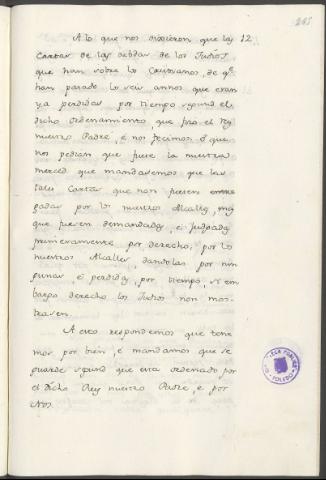 245
A lo que nos dixieron que las 12
Cartas de las debdas de los Judios
que han sobre los Cristianos, de que
han pasado los seis annos que eran
ya perdidas por tiempo segund el
dicho ordenamiento, que fizo el Rey
nuestro Padre, e nos decimos que
nos pedian que fuese la nuestra
merced que mandasemos que las
tales Cartas que non fuesen entre
gadas por los nuestros Alcalles, mas
que fuesen demandadas, e judgadas
primeramente por derecho, por los
nuestros Alcalles, dandolas por nin
gunas, e perdidas por tiempo, si em
bargo derecho los Judios non mos
trasen.
A esto respondemos que tene
mos por bien, e mandamos que se
guarde segund que esta ordenado por
el dicho Rey nuestro Padre, e por
Nos.
TOLEDO